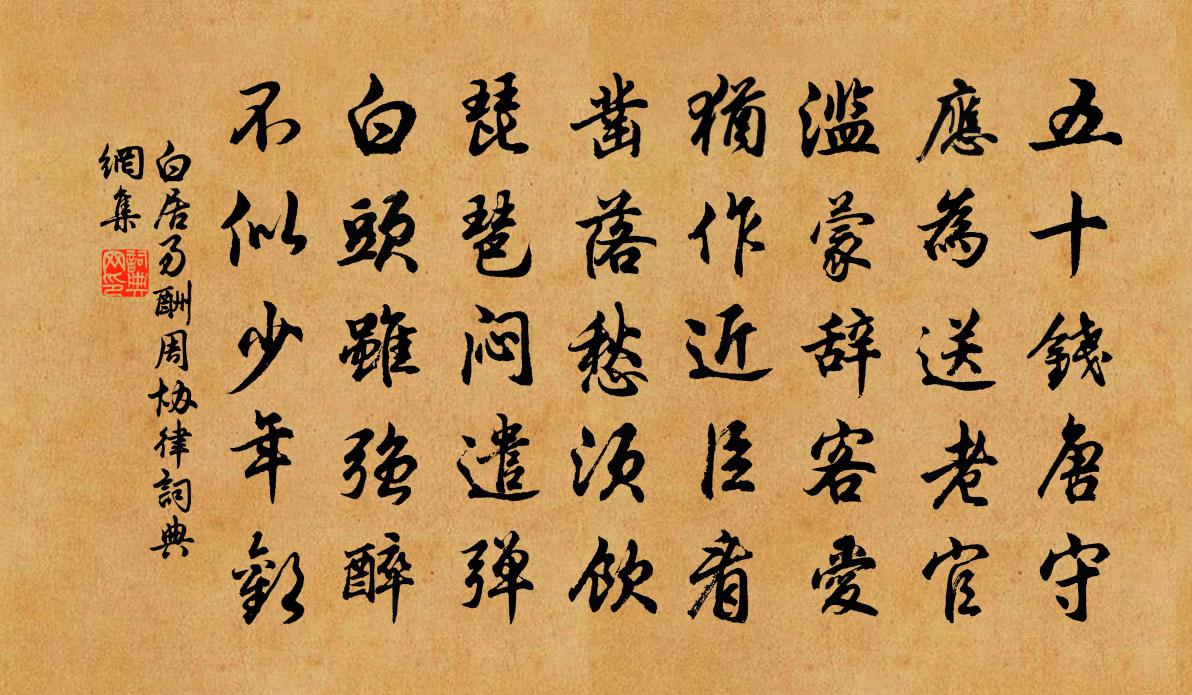 五十錢唐守
應為送老官
濫蒙辞客愛
猶作近臣看
凿落愁须飲
琵琶闷遣弹
白頭雖强醉
不似少年歡
白居易酬周协律詞典
網集
詞典
网印